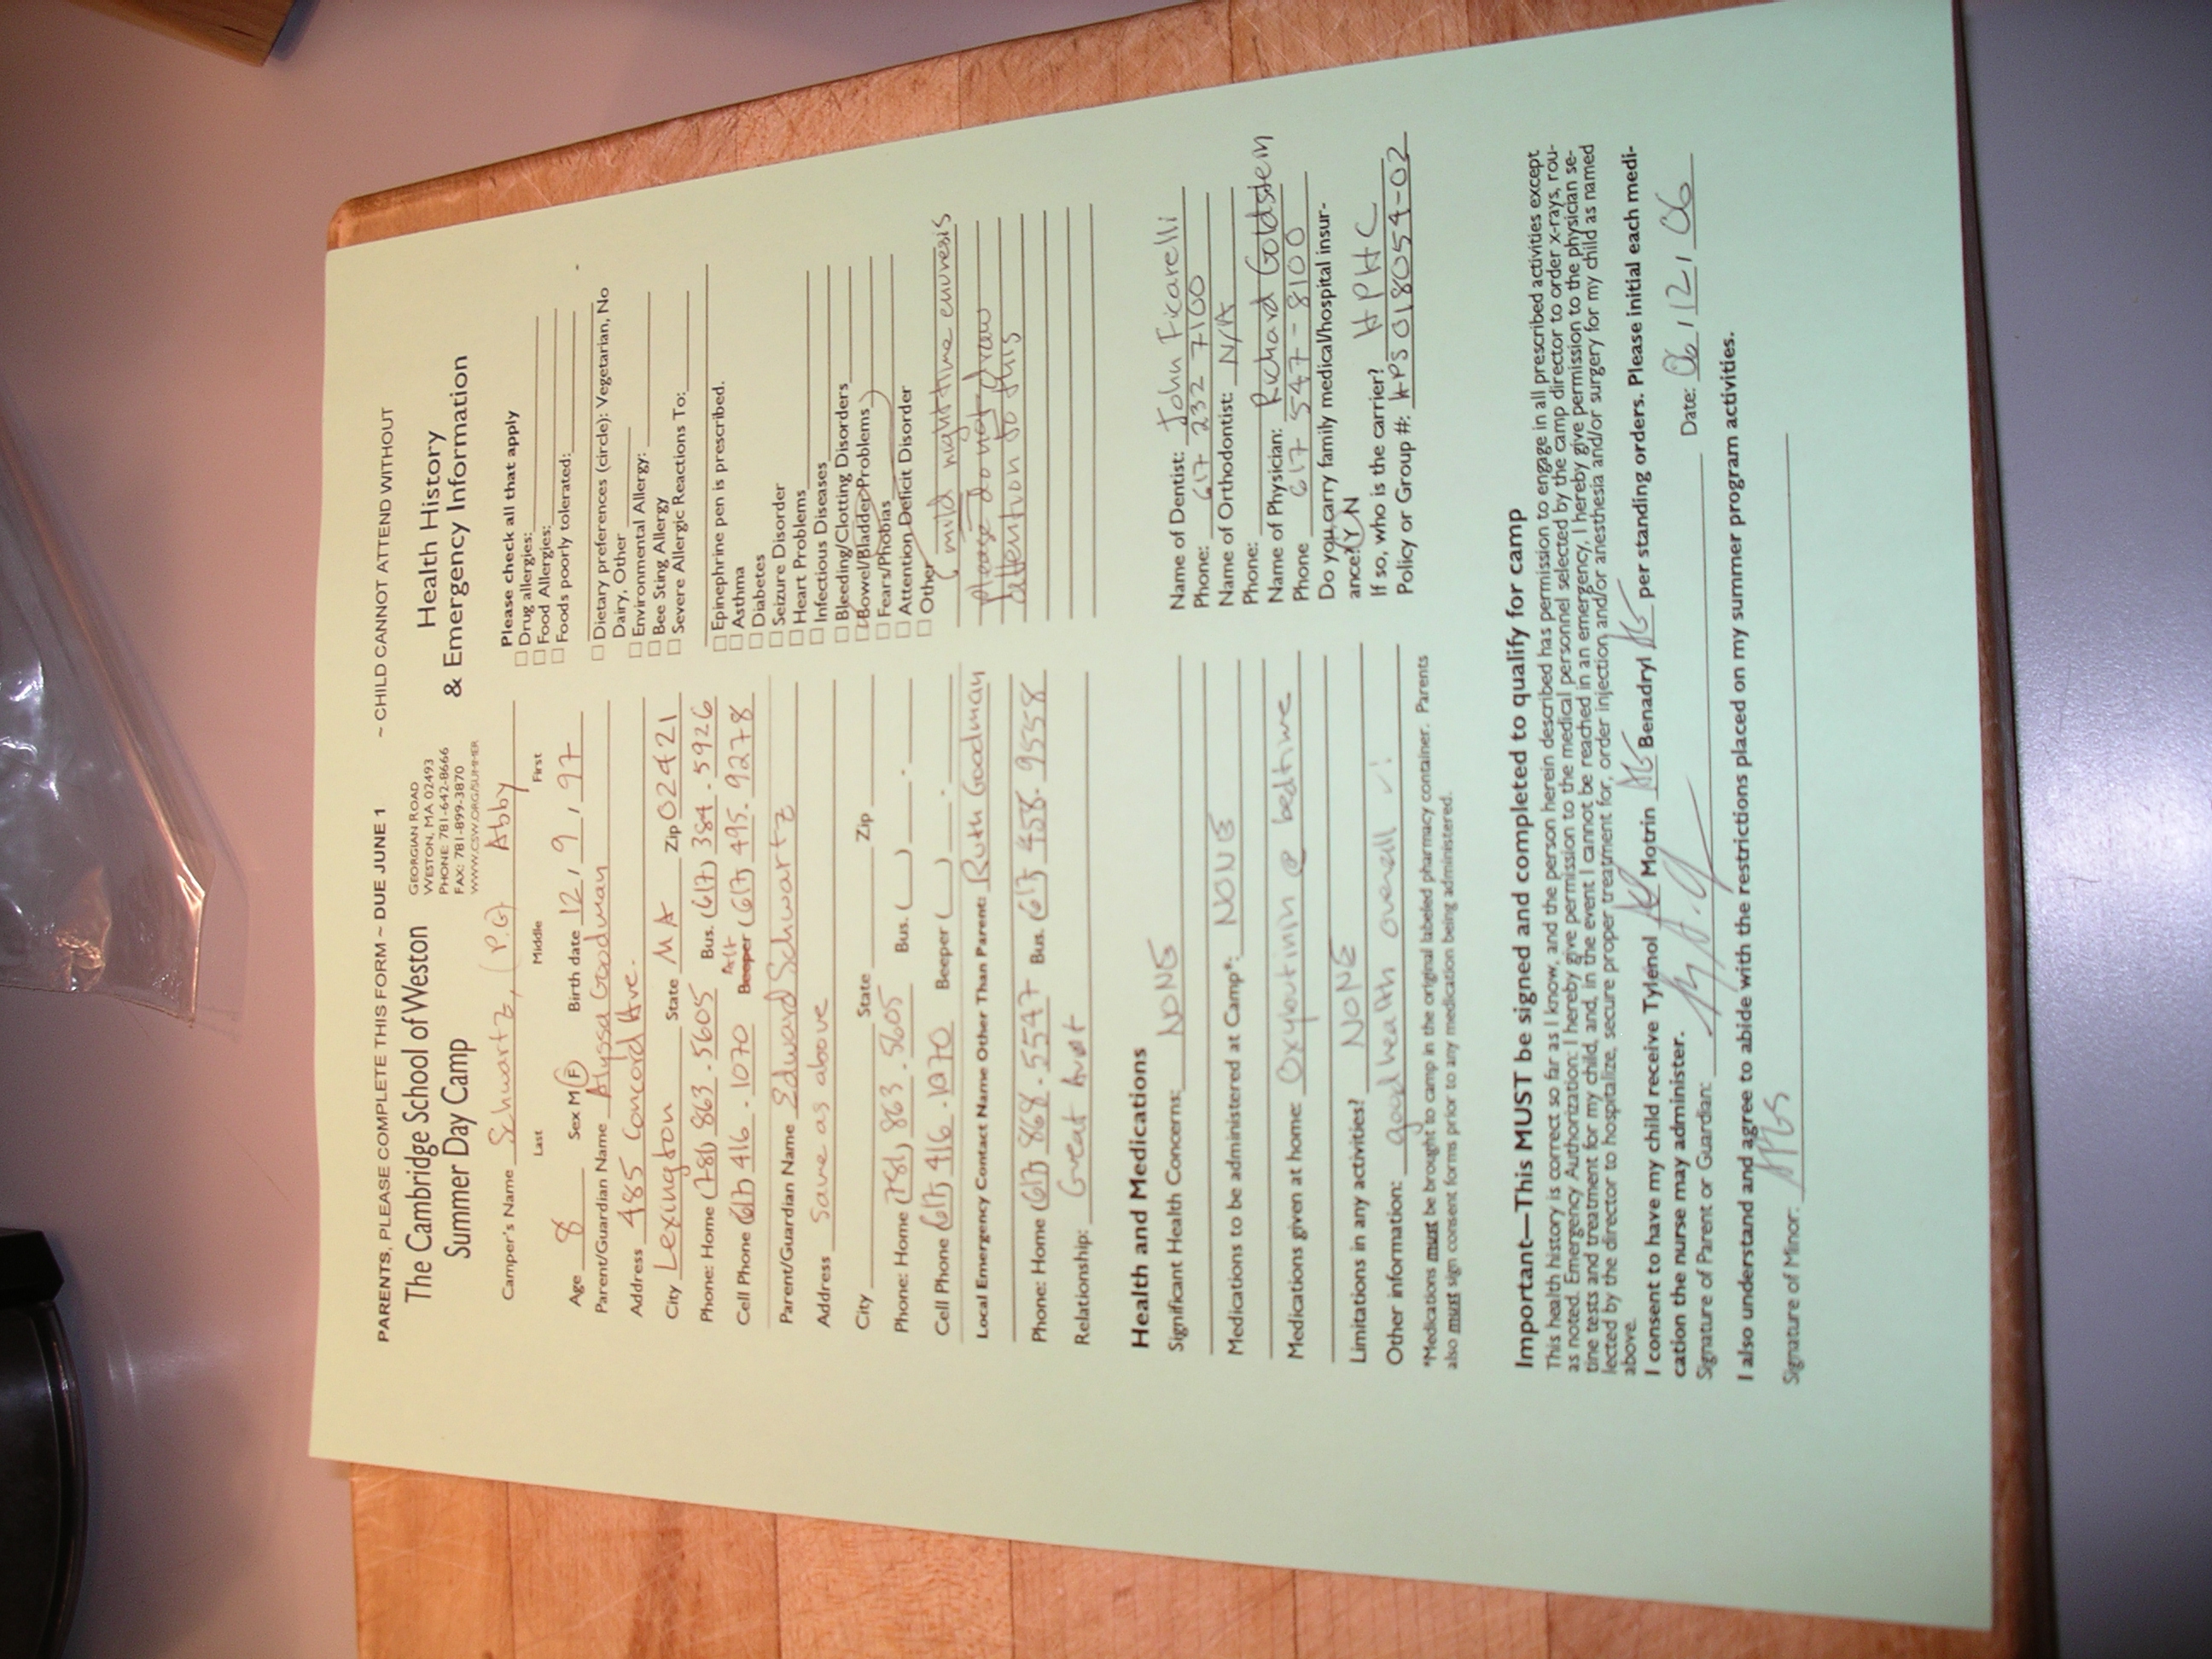 PARENTS, PLEASE COMPLETE THIS FORM ~ DUE JUNE 1 ~ CHILD CANNOT ATTEND WITHOUT
The Cambridge School of Weston
Summer Day Camp
GEORGIAN ROAD
WESTON, MA 02493
PHONE: 781-642-8666
FAX: 781-899-3870
WWW.CSW.ORG/SUMMER
Health History
& Emergency Information
Camper's Name Schwartz, (P.G) Abby
Last Middle First
Age 8 Sex M F Birth date 12, 9, 97
Parent/Guardian Name Alyssa Goodman
Address 485 Concord Ave.
City Lexington State MA Zip 02421
Phone: Home (781) 863.5605 Bus. (617) 384.5926
Cell Phone (617) 416.1070 Beeper Alt (617) 495.9278
Parent/Guardian Name Edward Schwartz
Address same as above
City State Zip
Phone: Home (781) 863.5605 Bus. ( )
Cell Phone (617) 416.1070 Beeper ( )
Local Emergency Contact Name Other Than Parent: Ruth Goodman
Phone: Home (617) 868.5547 Bus. (617) 458.9558
Relationship: Great Aunt
Please check all that apply
Drug allergies:
Food Allergies:
Foods poorly tolerated:
Dietary preferences (circle): Vegetarian, No
Dairy, Other
Environmental Allergy:
Bee Sting Allergy
Severe Allergic Reactions To:
Epinephrine pen is prescribed.
Asthma
Diabetes
Seizure Disorder
Heart Problems
Infectious Diseases
Bleeding/Clotting Disorders
Bowel/Bladder Problems
Fears/Phobias
Attention Deficit Disorder
Other
(mild nighttime enuresis
please do not draw
attention to this
Health and Medications
Significant Health Concerns: NONE
Medications to be administered at Camp*: NONE
Medications given at home: Oxybutinin @ bedtime
Limitations in any activities? NONE
Other information: good health overall
*Medications must be brought to camp in the original labeled pharmacy container. Parents
also must sign consent forms prior to any medication being administered.
Name of Dentist: John Ficarelli
Phone: 617 232 7100
Name of Orthodontist: N/A
Phone:
Name of Physician: Richard Goldstein
Phone 617 547-8100
Do you carry family medical/hospital insur-
ance? Y N
If so, who is the carrier? HPHC
Policy or Group #: HPS018054-02
Important—This MUST be signed and completed to qualify for camp
This health history is correct so far as I know, and the person herein described has permission to engage in all prescribed activities except
as noted. Emergency Authorization: I hereby give permission to the medical personnel selected by the camp director to order x-rays, rou-
tine tests and treatment for my child, and, in the event I cannot be reached in an emergency, I hereby give permission to the physician se-
lected by the director to hospitalize, secure proper treatment for, order injection and/or anesthesia and/or surgery for my child as named
above.
I consent to have my child receive Tylenol AG Motrin AG Benadryl AG per standing orders. Please initial each medi-
cation the nurse may administer.
Signature of Parent or Guardian: Date: 06, 12, 06
I also understand and agree to abide with the restrictions placed on my summer program activities.
Signature of Minor: